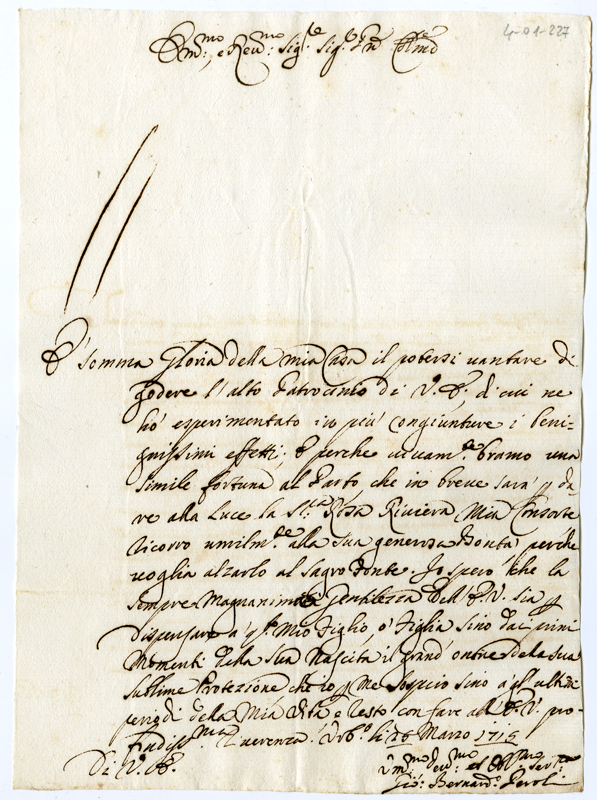 4-01-227
Em:mo, e Reu:mo Sig:re Sig:r Prõ Colmo
E' somma Gloria della mia Casa il potersi uantare di
godere l'alto Patrocinio di V. E., di cui ne
hò esperimentato in più congiunture i beni-
gnissimi effetti; E perche uiuam:te bramo una
simile fortuna al Parto che in breue sarà p da-
re alla Luce la Sig:ra Rosa Riuiera Mia Consorte
ricorro umilm:te alla sua generosa Bontà, perche
uoglia alzarlo al Sagro Fonte. Io spero che la
sempre Magnanima Gentilezza dell'E. V. sia p
dispensare à q:to Mio Figlio, ò Figlia sino dai primi
Momenti della Sua Nascita il grand'onore della sua
sublime Protezione che io p Me sino à gl'ultimi
periodi della Mia Vita e resto con fare all'E. V. pro-
fondiss:ma Riuerenza. li 28 Marzo 1715
Di V. E.
Um:mo Deu:mo ed Obl:mo Seru:re
Gio: Bernard:o Peroli